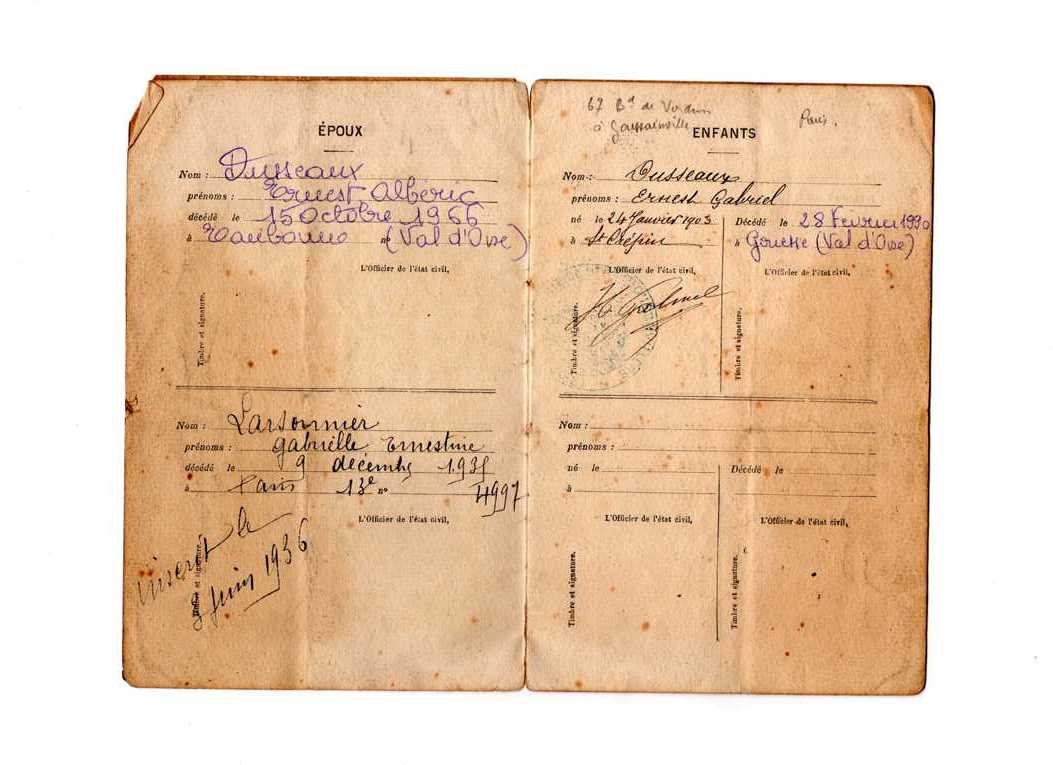 ÉPOUX
Nom : Dusseaux
prénoms : Ernest Albéric
décédé le 15 Octobre 1966
à nº (Val d'Oise)
L'Officier de l'état civil,
Timbre et signature.
Nom : Larsonnier
prénoms : Gabrielle Ernestine
décédé le 9 décembre
à Paris 13e nº 4997
L'Officier de l'état civil,
Timbre et signature.
inscrit le
8 Juin 1936
67 Bd de Verdun
à Goussainville
Paris.
ENFANTS
Nom : Dusseaux
prénoms : Ernest Gabriel
né le 24 Janvier 1903
à St Crépin
L'Officier de l'état civil,
Timbre et signature.
Décédé le 28 Fevrier 1990
à Gonesse (Val d'Oise)
L'Officier de l'état civil,
Timbre et signature.
Nom :
prénoms :
né le
à
L'Officier de l'état civil,
Timbre et signature.
Décédé le
L'Officier de l'état civil,
Timbre et signature.